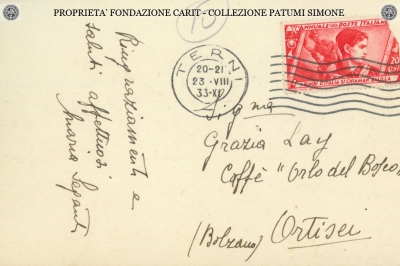 PROPRIETA' FONDAZIONE CARIT - COLLEZIONE PATUMI SIMONE
10
Ringraziamenti e
saluti affettuosi
Maria
TERNI
20-21
23·VIII
33-XI
ANNUALE DELLE POSTE ITALIANE
20
Sig.na
Grazia Lay
Caffè "Orlo del Bosco"
(Bolzano) Ortisei